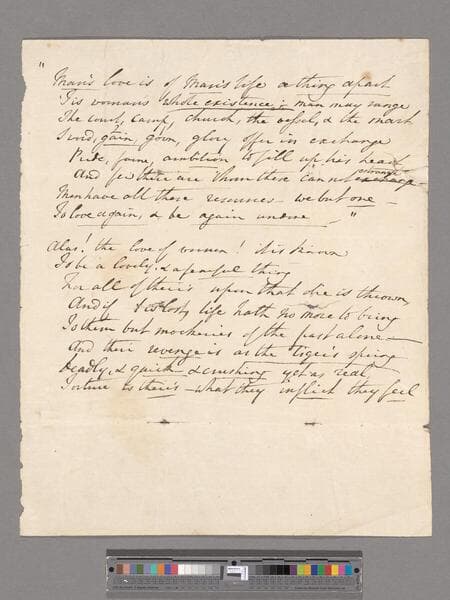 "
Man's love is of Man's life a thing apart
'Tis womans whole existence; man may range
The court, camp, church, the vessel, & the mart
Sword, gain, gown, glory offer in exchange
Pride, fame, ambition to fill up his heart
And few there are whom these can not estrange
Men have all these resources we but one —
To love again, & be again undone — "
Alas! the love of women! it is known
To be a lovely & a fearful thing
For all of their's upon that die is thrown
And if 'tis lost, life hath no more to bring
To them but mockeries of the past alone —
And their revenge is as the tiger's spring
Deadly, & quick & crushing yet as real,
Torture is their's — what they inflict they feel